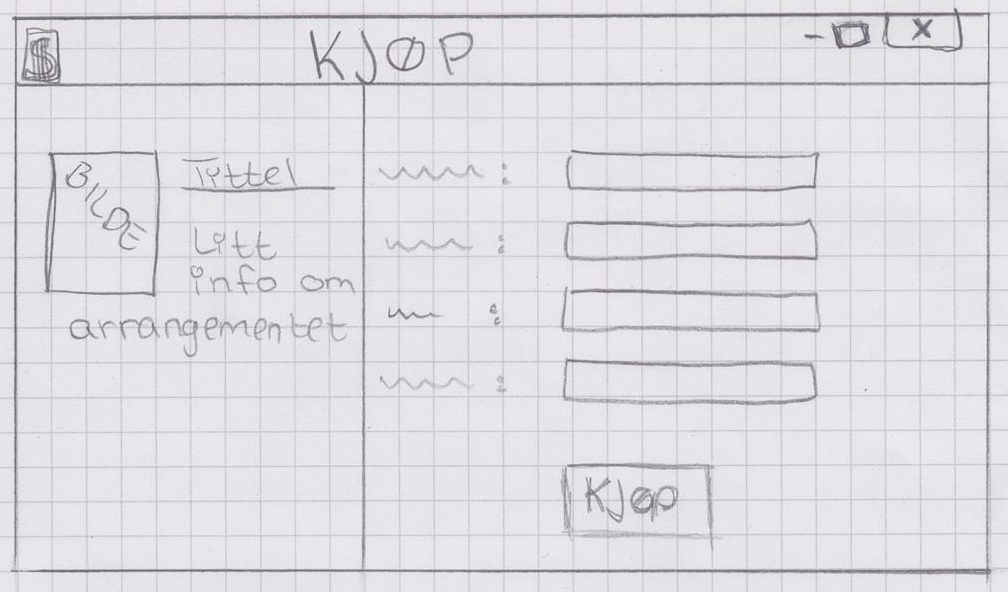 $
KJØP
X
BILDE
Tittel
Litt
info om
arrangementet
:
:
:
:
KJØP